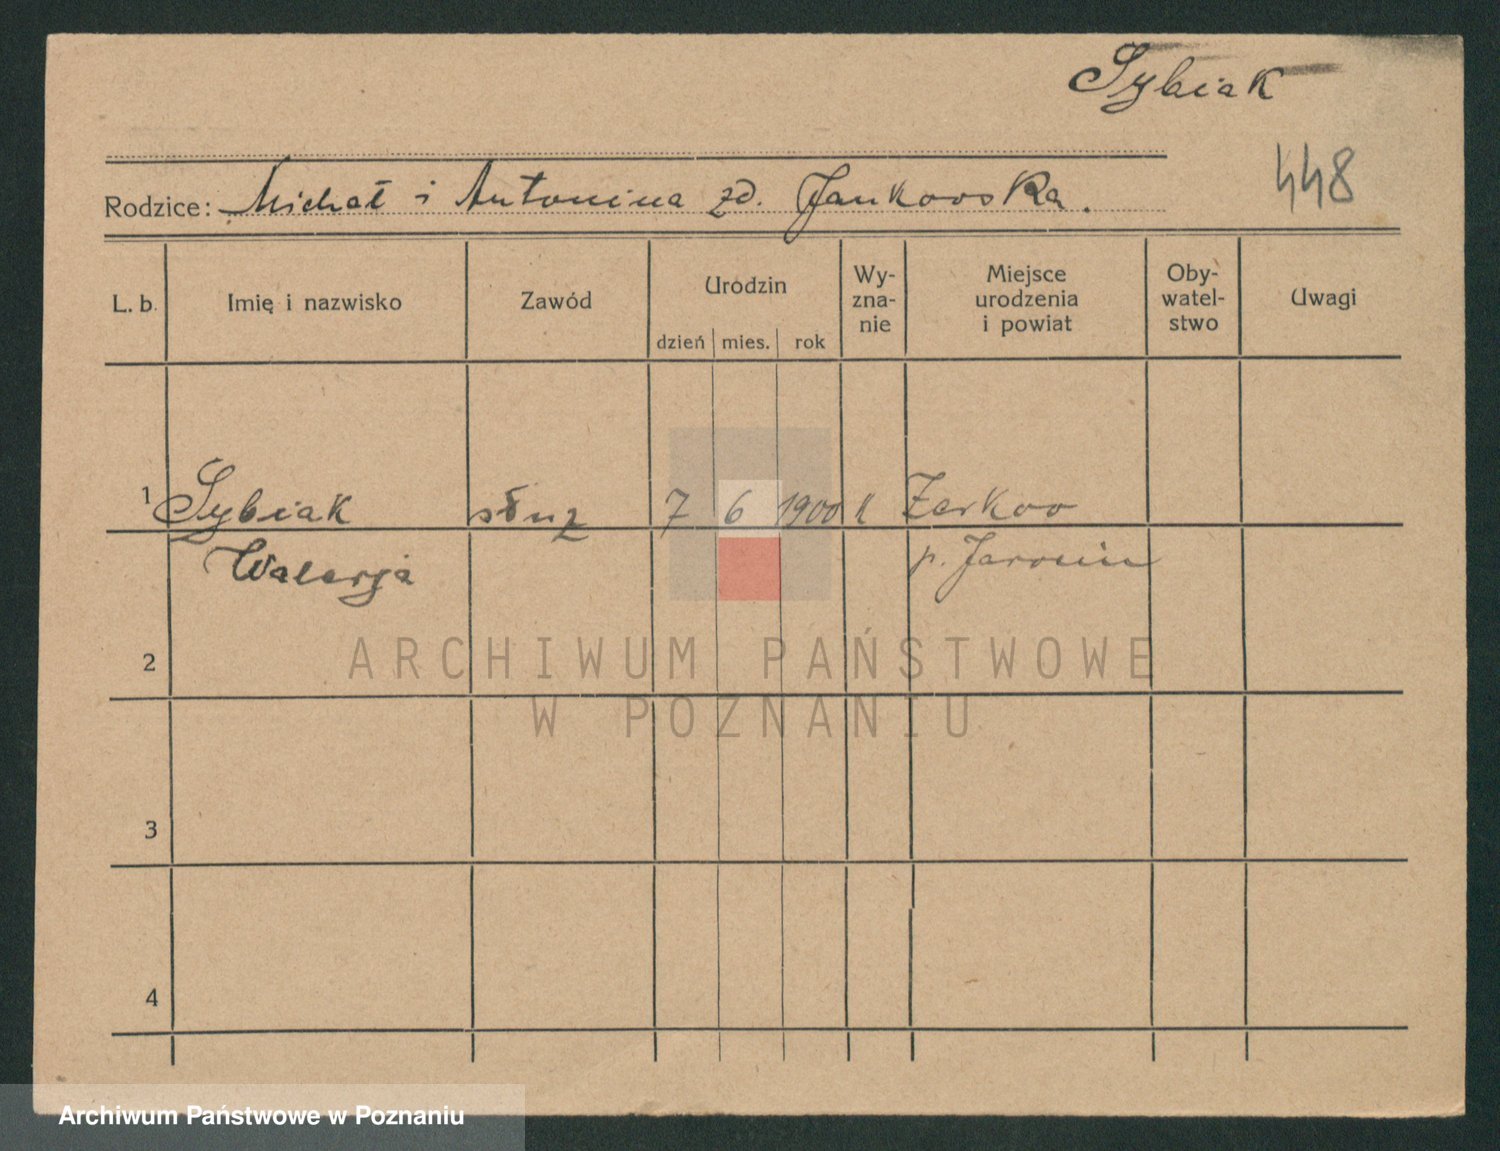 Sybiak
448
Rodzice: Michał i Antonina zd. Jankowska.
L. b. Imię i nazwisko Zawód Urodzin dzień mies. rok Wy-
zna-
nie Miejsce
urodzenia
i powiat Oby-
watel-
stwo Uwagi
1 Sybiak służ 7 6 1900 k Zerkow
Walerja p. Jarocin
2
ARCHIWUM PAŃSTWOWE
W POZNANIU
3
4
Archiwum Państwowe w Poznaniu